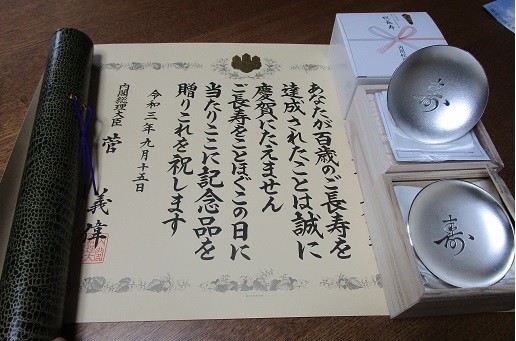 あなたが百歳のご長寿を
達成されたことは誠に
慶賀にたえません
ご長寿をことほぐこの日に
当たりここに記念品を
贈りこれを祝します
令和三年九月十五日
内閣総理大臣 菅 義偉
寿
寿